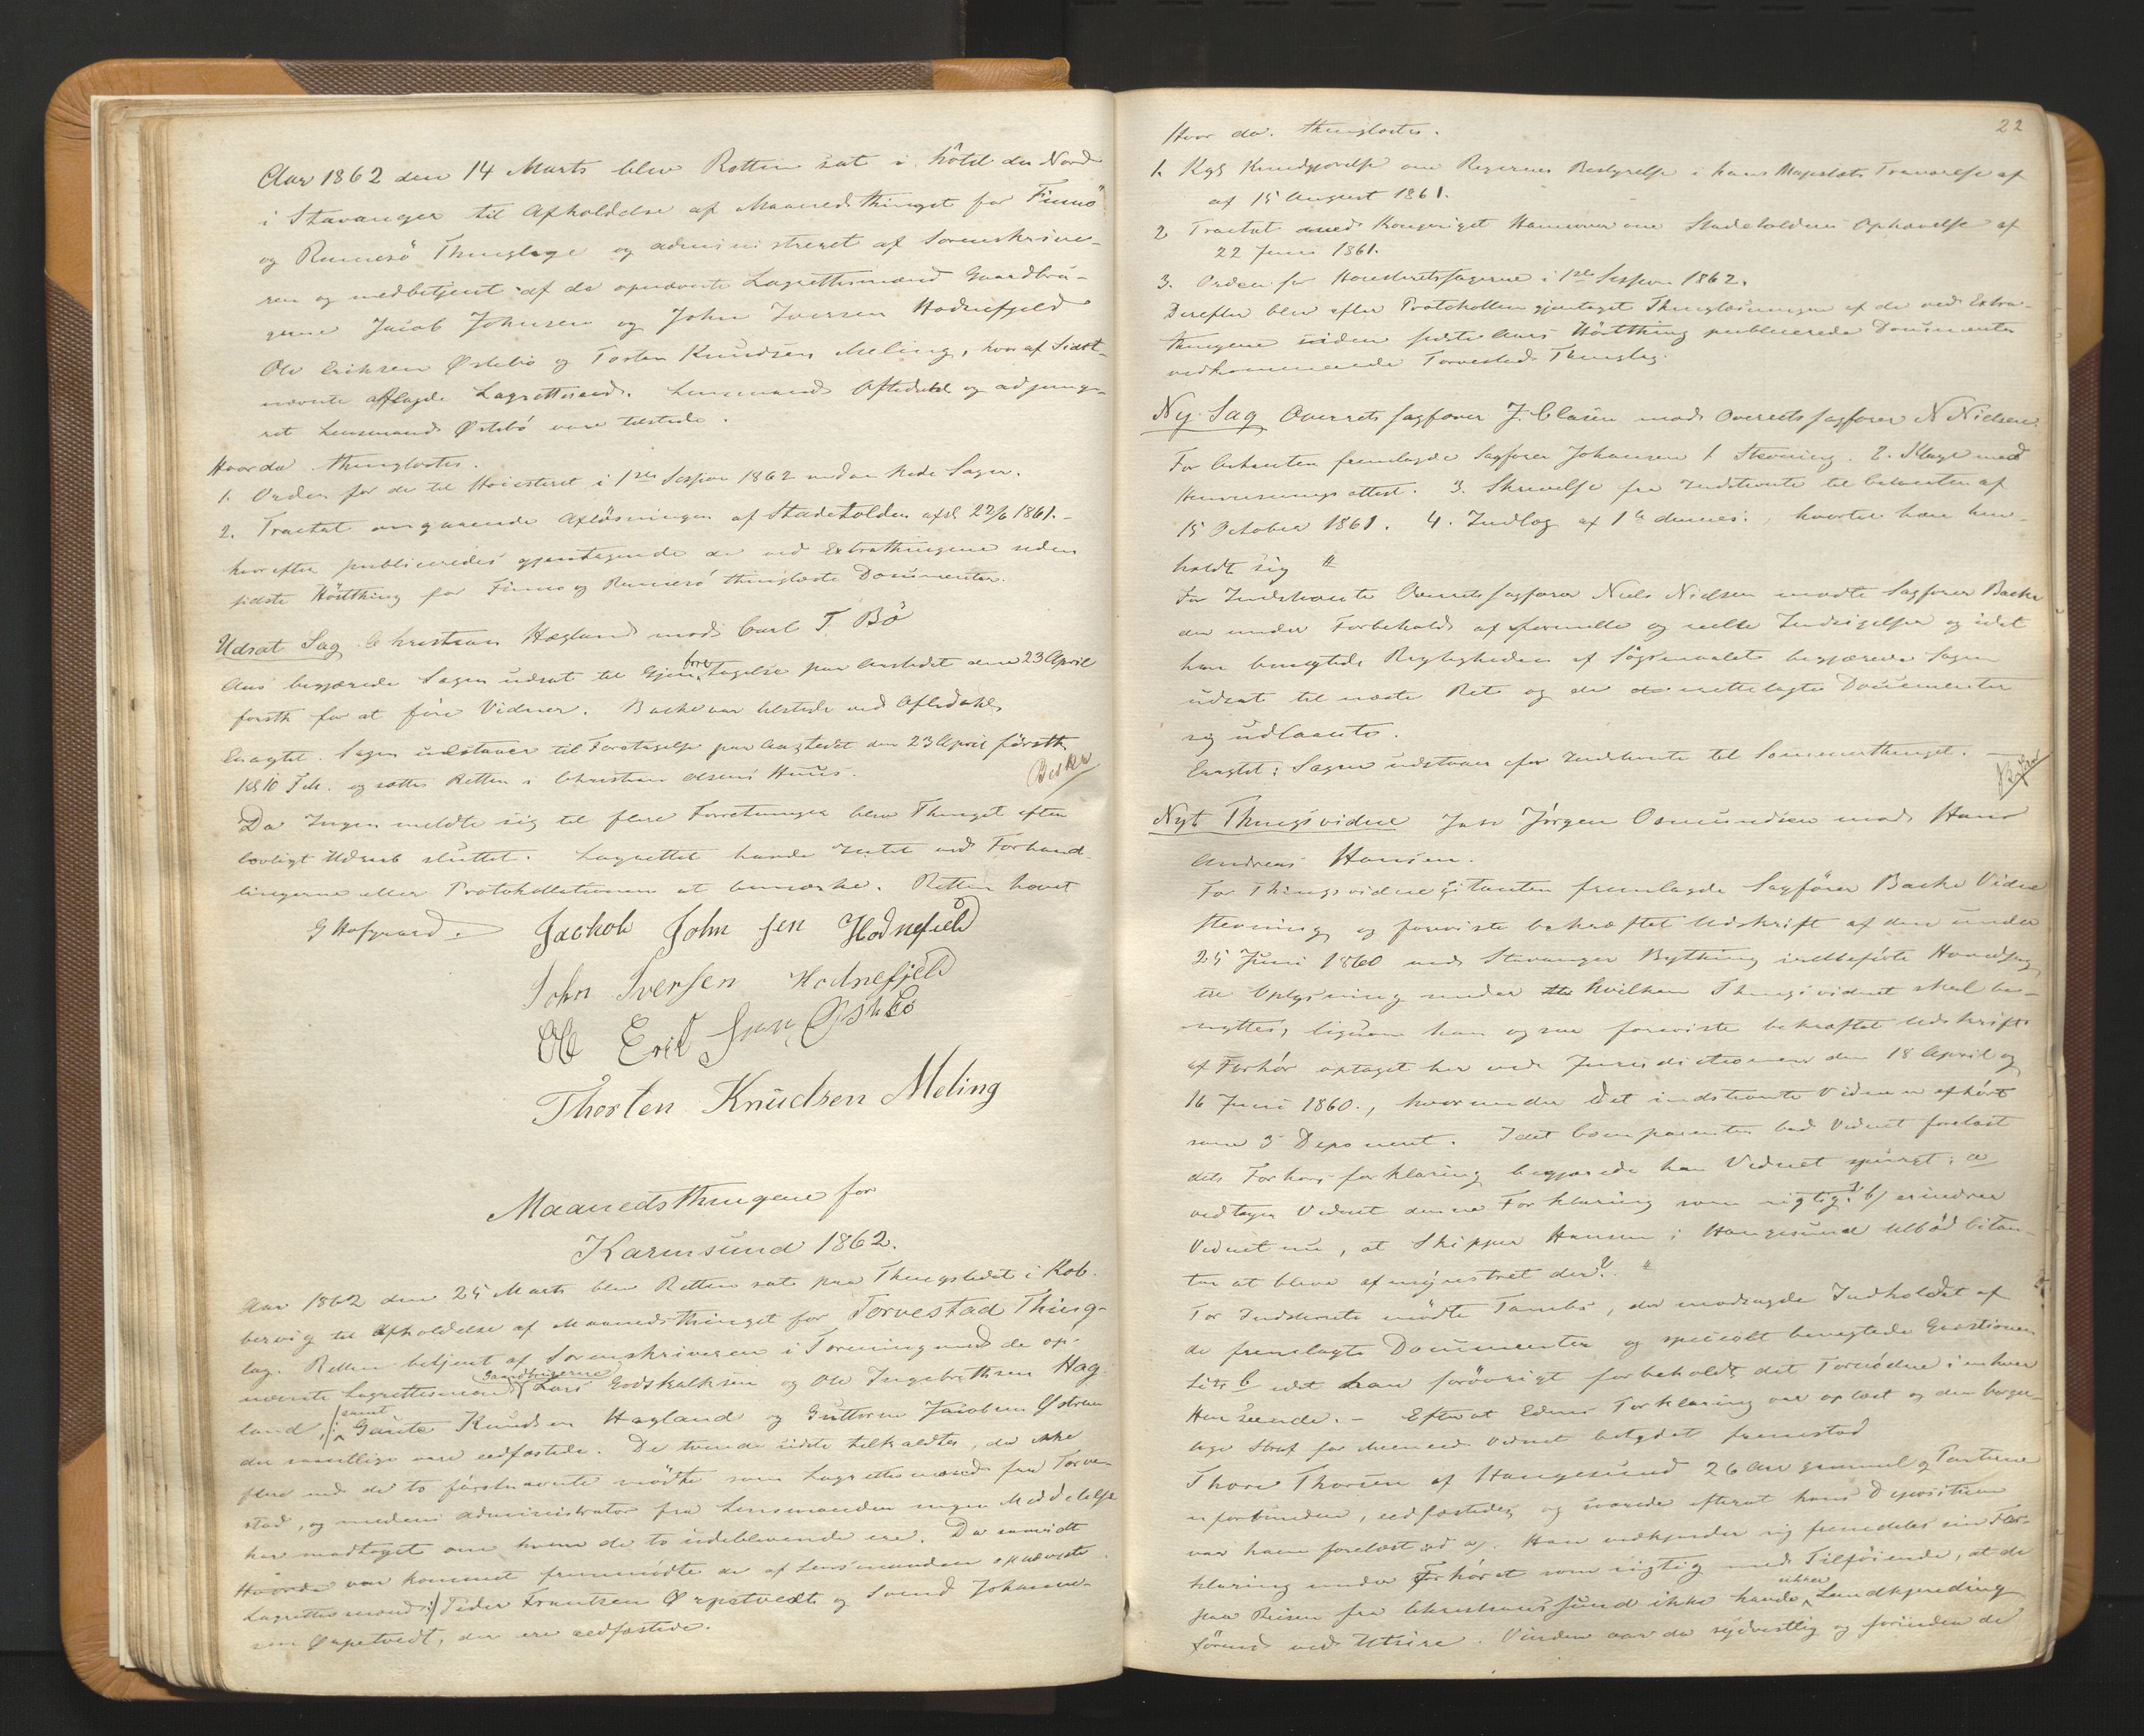 Aar 1862 den 14 Marts blev Retten sat i hôtel du Nord
i Stavanger til Afholdelse af Maanedsthinget for Finnö
og Rennesö Thinglage og administreret af Sorenskrive-
ren og medbetjent af de opnævnte Lagrettesmænd Gaardbru-
gerne Jacob Johnsen og John Iversen Hodnefjeld
Ole Eriksen Østebö og Tosten Knudsen Meling, hvoraf Sidst-
nævnte aflagde Lagretteseed. Lensmand Aftedahl og adjunge-
ret Lensmand Østebö vare tilstede.
Hvor da thinglæstes.
1. Orden for de til Höiesteret i 1ste Session 1862 indankede Sager.
2. Tractat angaaende Aflösningen af Stadetolden afsl 22/6 1861.-
hvorefter publiceredes gjentagende de ved Extrathingene siden
sidste Höstthing for Finnö og Rennesö thinglæste Documenter.
Udsat Sag Christian Hægland mod Carl T. Bö
Aas begjærede Sagen udsat til Gjenforetagelse paa Aastedet den 23 April
førstk for at före Vidner. Bache var tilstede ved Aftedahl
Eragtet. Sagen udstaaer til Foretagelse paa Aastedet den 23 April förstk
Kl 10 Fm. og sættes Retten i Christian Olsens Huus.
Da Ingen meldte sig til flere Forretninger blev Thinget efter
lovligt Udraab sluttet. Lagrettet havde Intet ved Forhand-
lingerne eller Protokollationen at bemærke. Retten hævet
G Hofgaard. Jackob Johnsen Hodnefield
John Iversen Hodnefjeld
Ole Eriksen Østebö
Thosten Knüdsen Meling
Maanedsthingene for
Karmsund 1862.
Aar 1862 den 25 Marts blev Retten sat paa Thingstedet i Kob-
bervig til Afholdelse af Maanedsthinget for Torvestad Thing-
lag. Retten betjent af Sorenskriveren i Forening med de op-
nævnte Lagrettesmænd Gaardbrugerne Lars Godskalksen og Ole Ingebrethsen Hag-
land, samt Gaute Knudsen Hagland og Guttorm Jacobsen
der samtlige vare eedfæstede. De tvende sidste tilkaldtes, da ikke
flere end de to förstnævnte mödte som Lagrettesmænd fra Torve-
stad, og medens Administrator fra Lensmanden ingen Meddelelse
har modtaget om hvem de to udeblevende ere. Da saavidt
Hvorda var kommet fremmødte de af Lensmanden opnævnte
Lagrettesmænd Peder Frantsen Ørpetvedt og Svend Johanne-
sen Ørpetvedt, der ere eedfæstede.
22
Hvor da thinglæstes.
1. Kgl Kundgjørelse om Regjerings Bestyrelse i hans Majestæts Fraværelse af
af 15 August 1861.
2 Tractat med Kongeriget Hannover om Stadetoldens Ophævelse af
22 Juni 1861.
3. Orden for Høiesteretssagerne i 1ste Session 1862.
Derefter blev efter Protokollen gjentaget Thinglæsningen af de ved Extra-
thingene siden sidste Aars Höstthing publicerede Documenter
vedkommende Torvestad Thinglag.
Ny Sag Overrets Sagfører J. Clasen mod Overretssagfører N Nielsen
For Citanten fremlagde Sagfører Johannsen 1. Stevning. 2. Klage med
Henvisningsattest. 3. Skrivelse fra Indstevnte til Citanten af
15 October 1861. 4. Indlæg af 1ste dennes. hvortil han hen-
holdt sig
For Indstevnte Overretssagfører Niels Nielsen mødte Sagfører Bache
der under Forbehold af formelle og reelle Indsigelser og idet
han benegtede Rigtigheden af Søgsmaalet begjærede Sagen
udsat til næste Ret og de i rettelagte Documenter
sig udlaante.
Eragtet: Sagen udstaaer for Indstevnte til Sommerthinget.
Nyt Thingsvidne Jörgen Osmundsen mod Hans
Andreas Hansen.
For Thingsvidnecitanten fremlagde Sagfører Bache Vidne
stevning og foreviste bekræftet Udskrift af den under
25 Juni 1860 ved Stavanger Bything indbeførte Hovedsag
til Oplysning under hvilken Thingsvidnet skal be-
nyttes, ligesom han og saa foreviste bekræftet Udskrift
af Forhör optaget her ved Jurisdictionen den 18 April og
16 Juni 1860., hvorunder det indstevnte Vidne er afhört
som 3 Deponent. Idet Comparenten bad Vidnet forelæst
dets Forhørsforklaring begjærede han Vidnet spurgt: a
vedtager Vidnet denne Forklaring som rigtig? b/ erindrer
Vidnet nu, at Skipper Hansen i Haugesund tilböd Citan-
ten at blive afmynstret der?
For Indstevnte mödte Tambs, der modsagde Indholdet af
de fremlagte Documenter og specielt benegtede Qvæstionen
Litr b idet han forövrigt forbeholdt det Fornødne i enhver
Henseende.- Efterat Edens Forklaring var oplæst og den borger-
lige Straf for Meeneed Vidnet betydet fremstod
Thore Thorsen af Haugesund 26 Aar gammel Parterne
uforbunden, eedfæstedes og svarede efterat hans Deposition
var ham forelæst ad a). Han vedkjender sig fremdeles sin For-
klaring under Forhøret som rigtig med Tilföiende, at de
paa Reisen fra Christianssund ikke havde Landkjending
förend ved Utsire. Vinden var da sydvestlig og forinden de